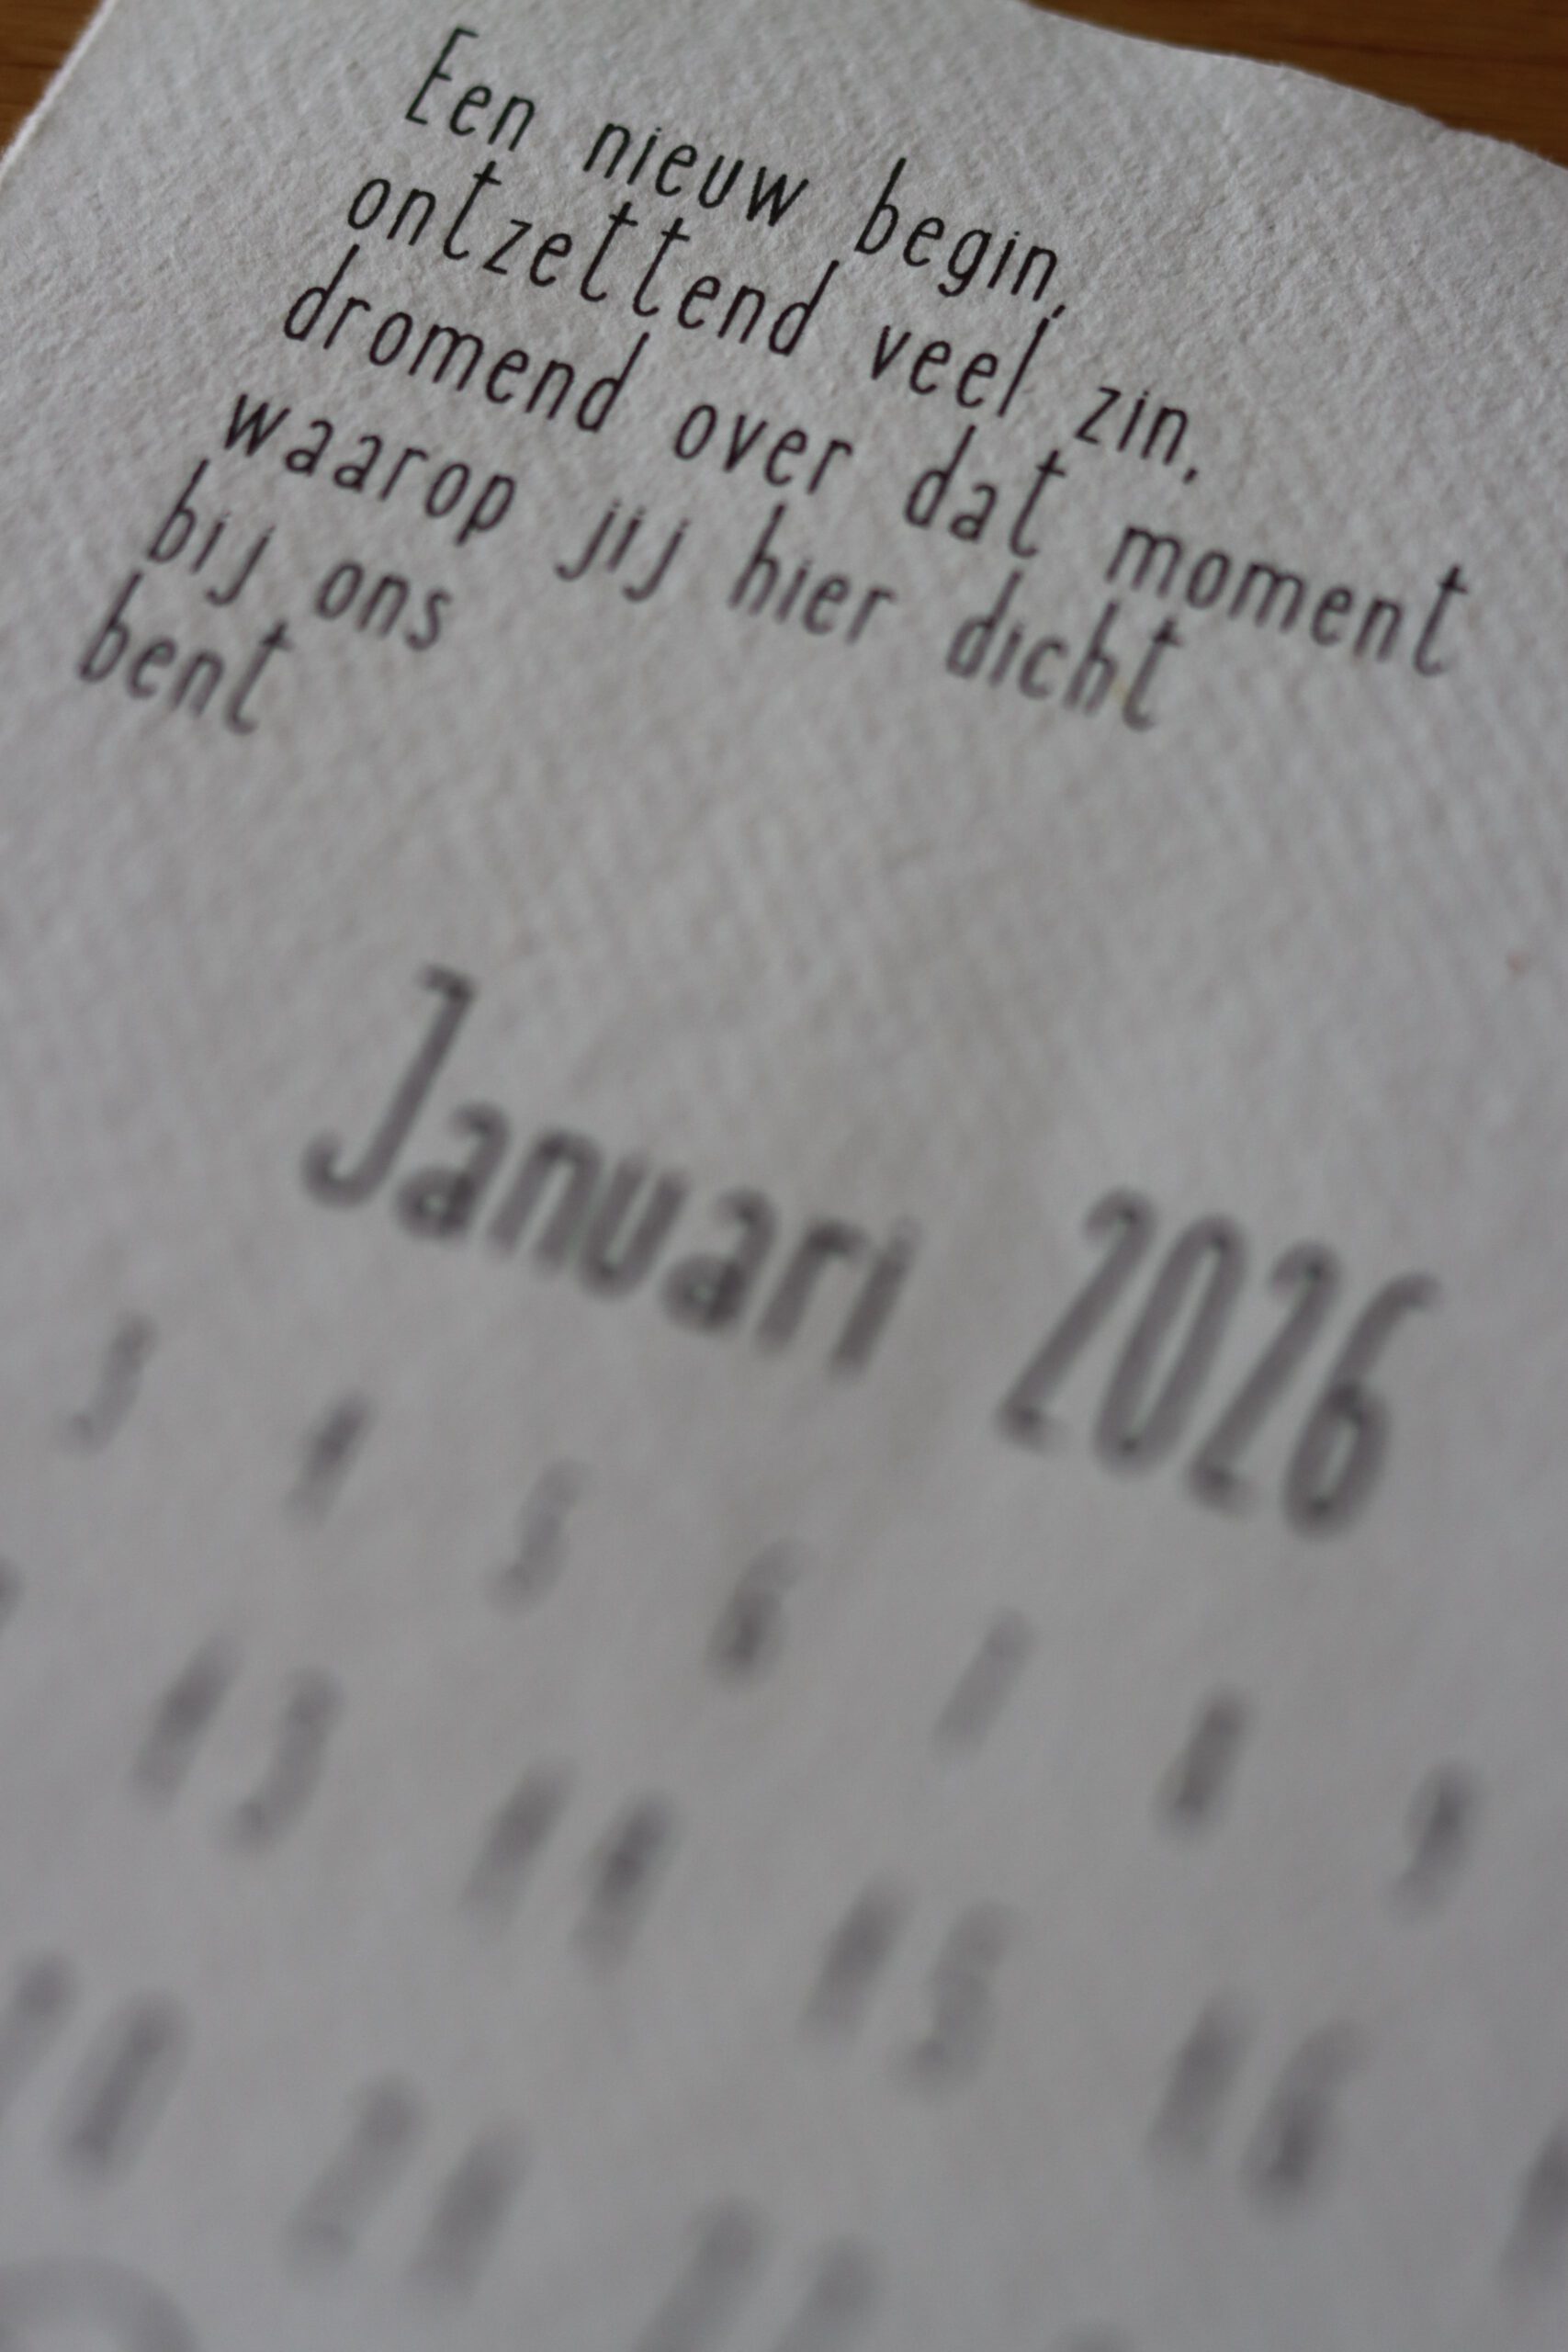 Een nieuw begin,
ontzettend veel zin.
dromend over dat moment
waarop jij hier dicht
bij ons
bent
Januari 2026
3 4 5 6 7 8 9
13 14 15 16